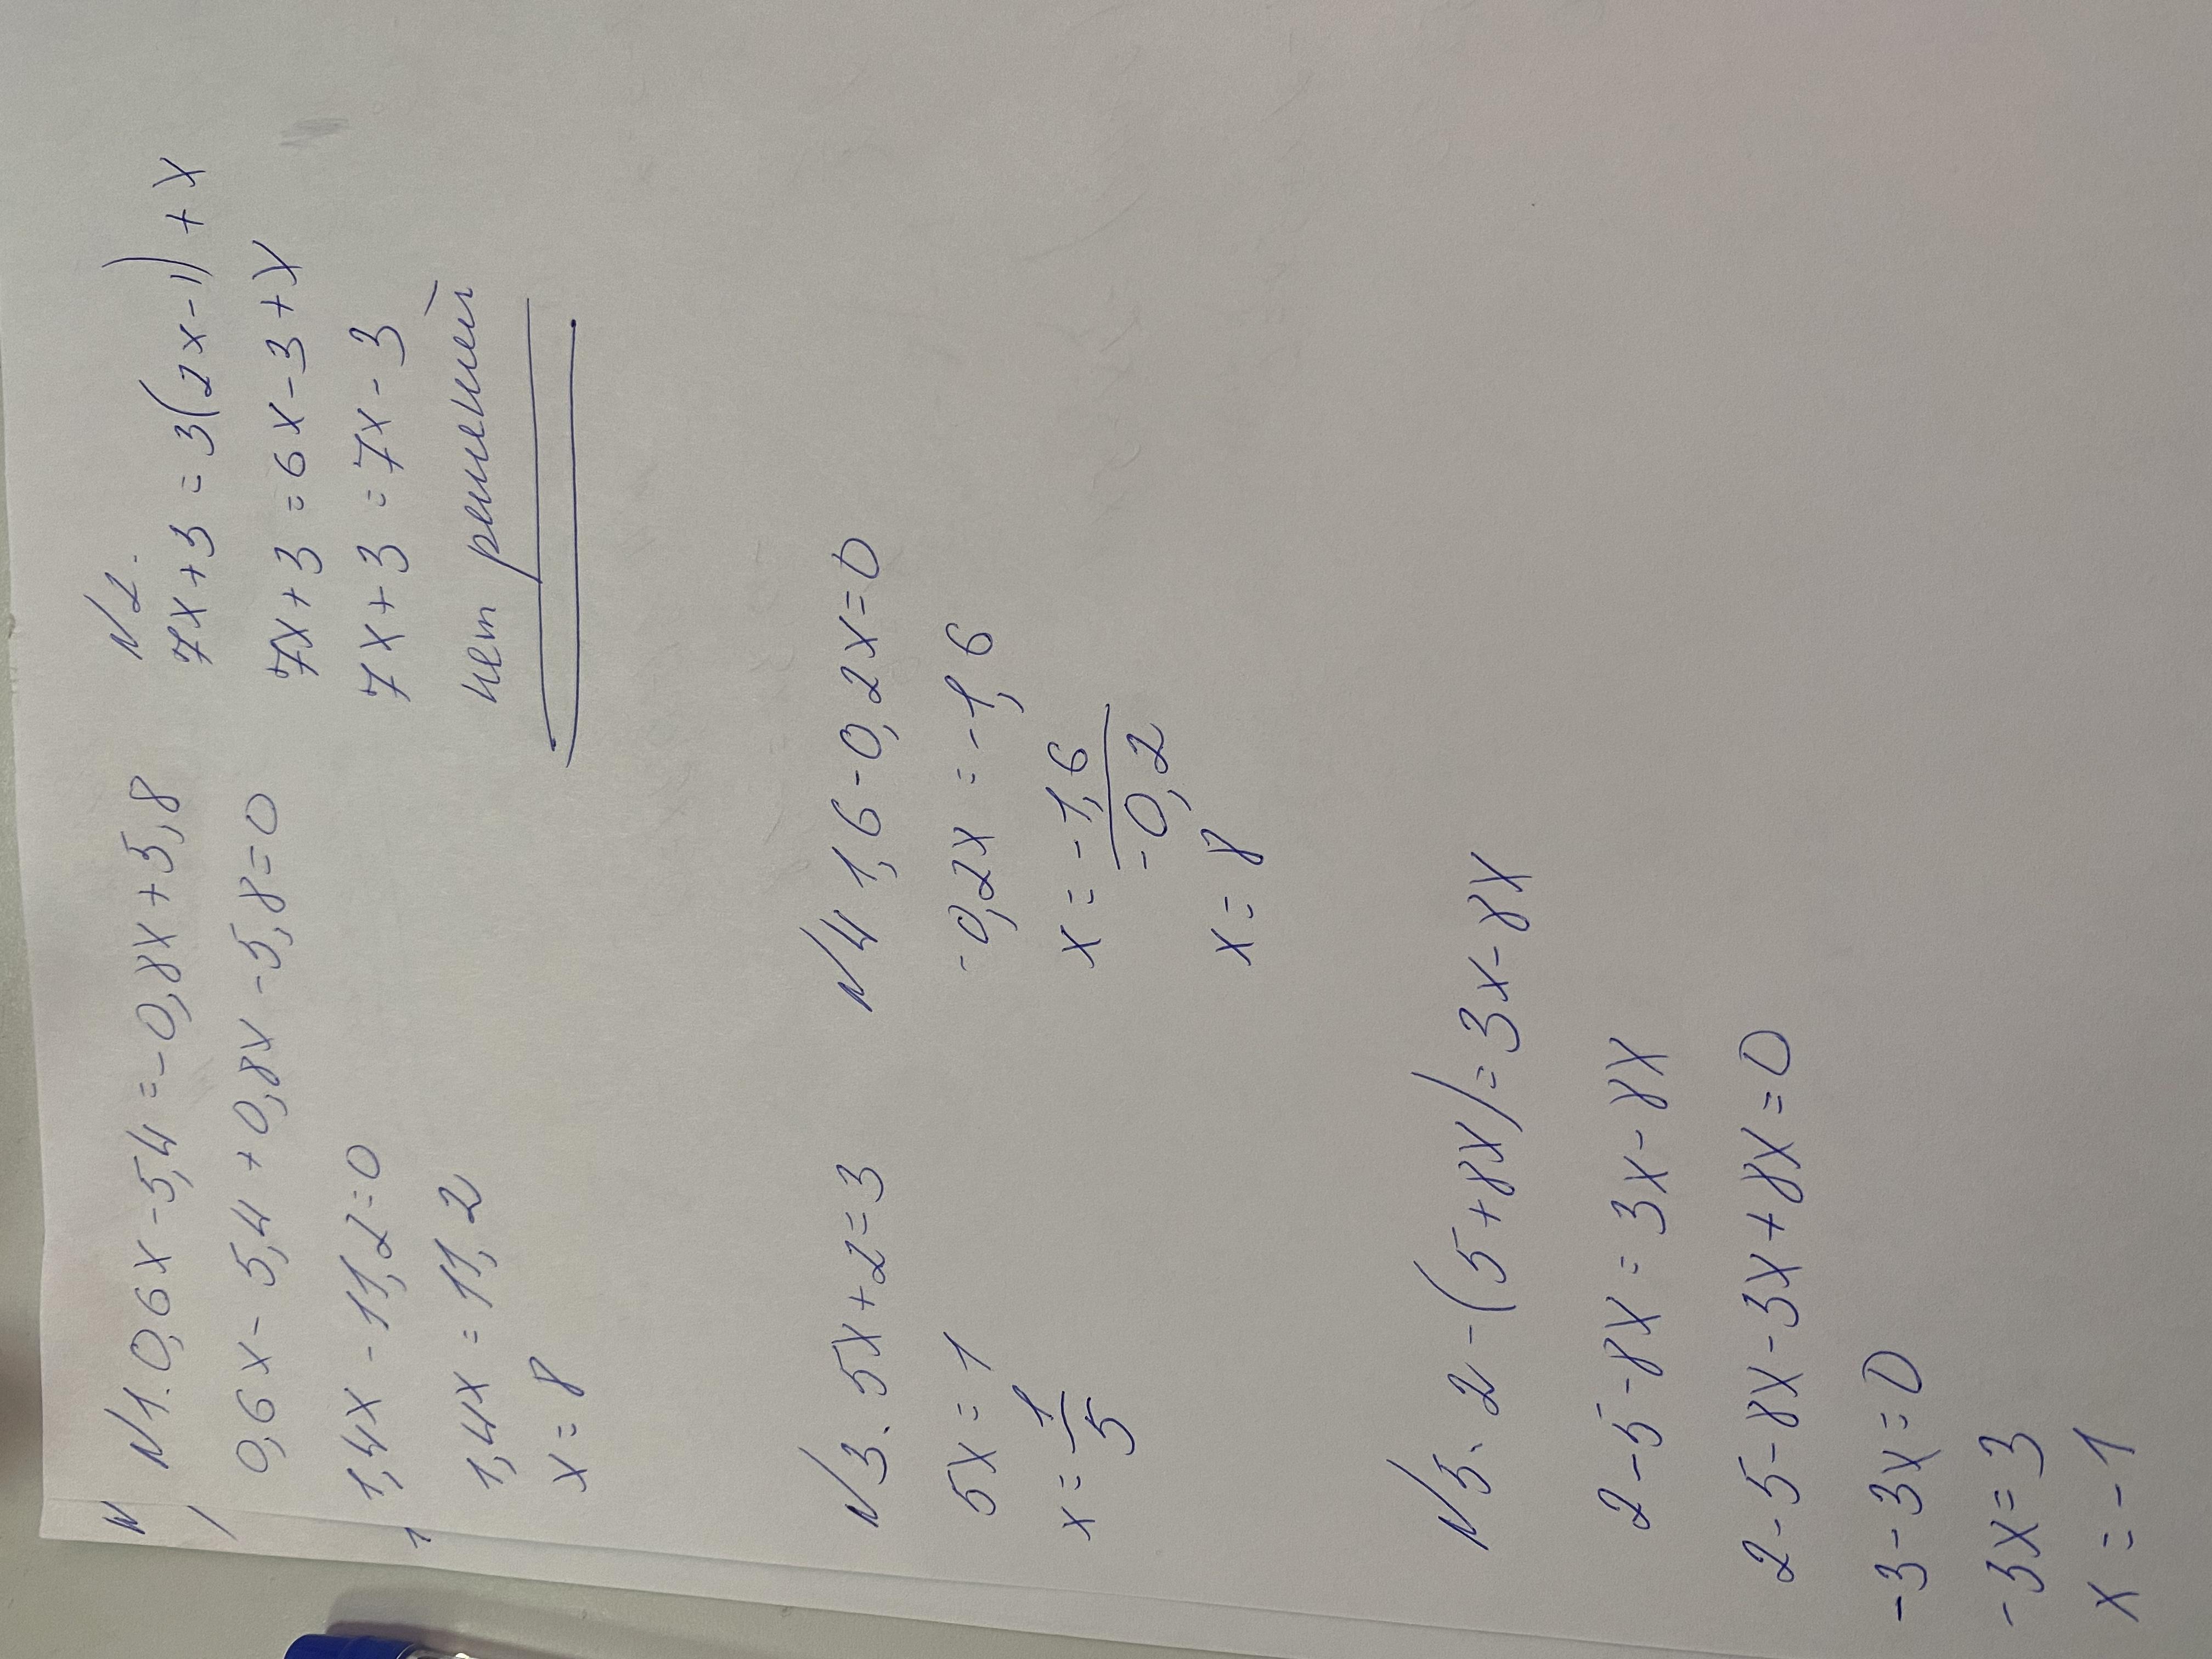 N1. 0,6x-5,4=-0,8x+5,8
0,6x-5,4+0,8x-5,8=0
1,4x-11,2=0
1,4x=11,2
x=8
N2.
7x+3=3(2x-1)+x
7x+3=6x-3+x
7x+3=7x-3
нет решений
N3. 5x+2=3
5x=1
x=1/5
N4 1,6-0,2x=0
-0,2x=-1,6
x=-1,6/-0,2
x=8
N5. 2-(5+8x)=3x-8x
2-5-8x=3x-8x
2-5-8x-3x+8x=0
-3-3x=0
-3x=3
x=-1